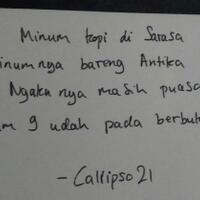 Minum kopi di Sarasa
inumnya bareng Antika
Ngaku nya masih puasa
m 9 udah pada berbu
- Callipso 21